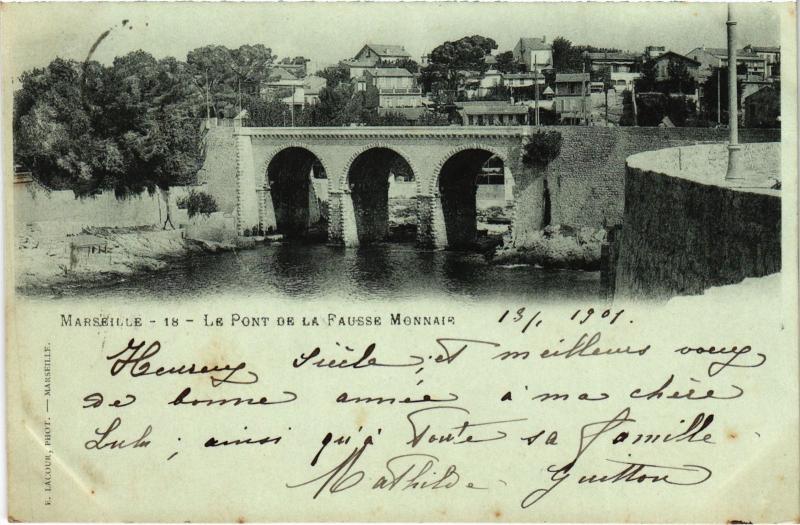 MARSEILLE - 18 - LE PONT DE LA FAUSSE MONNAIE
13/1 1901.
Heureux Siècle, et meilleurs voeux
de bonne année à ma chère
Lulu ; ainsi qu'à toute sa famille
Mathilde Guitton
E. LACOUR, PHOT. — MARSEILLE.